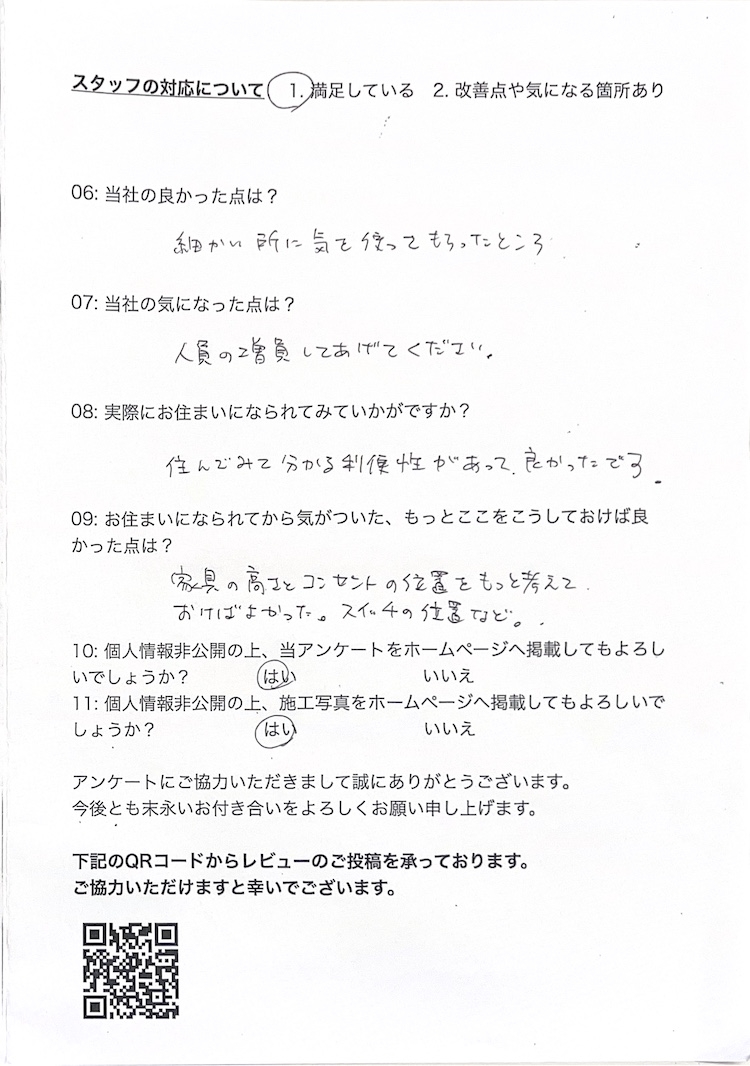 スタッフの対応について 1. 満足している 2. 改善点や気になる箇所あり
06: 当社の良かった点は？
細かい所に気を使ってもらったところ
07: 当社の気になった点は？
人員の増員してあげてください。
08: 実際にお住まいになられてみていかがですか？
住んでみて分かる利便性があって、良かったです。
09: お住まいになられてから気がついた、もっとここをこうしておけば良
かった点は？
家具の高さとコンセントの位置をもっと考えて
おけばよかった。スイッチの位置など。
10: 個人情報非公開の上、当アンケートをホームページへ掲載してもよろし
いでしょうか？ はい いいえ
11: 個人情報非公開の上、施工写真をホームページへ掲載してもよろしいで
しょうか？ はい いいえ
アンケートにご協力いただきまして誠にありがとうございます。
今後とも末永いお付き合いをよろしくお願い申し上げます。
下記のQRコードからレビューのご投稿を承っております。
ご協力いただけますと幸いでございます。